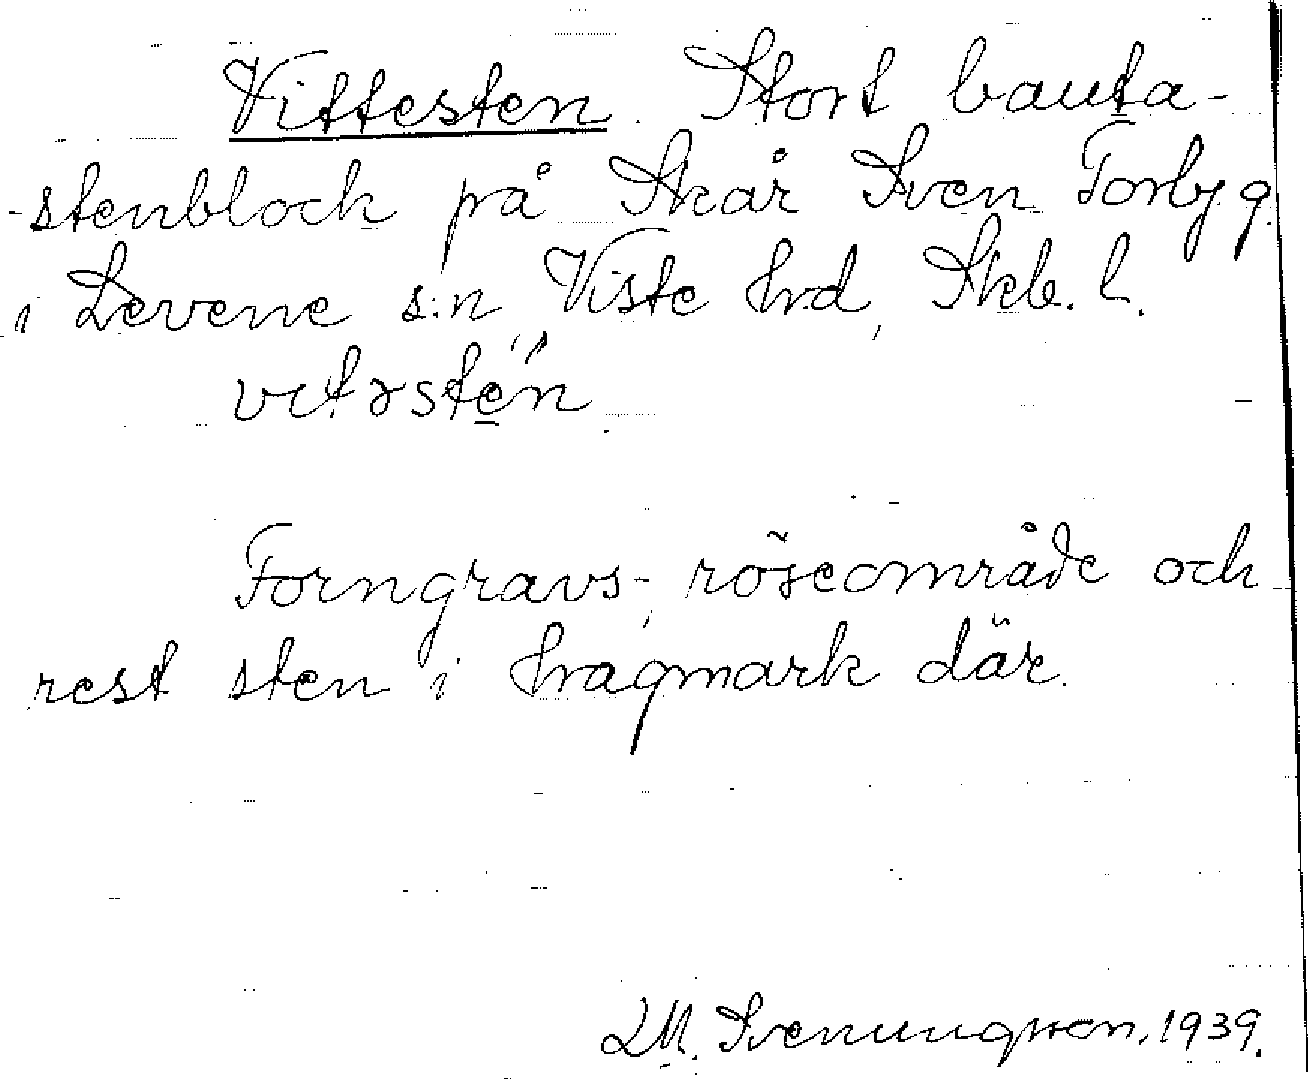 Vittesten. Stort bauta-
-stenblock på Skår Sven Torbj. g.
i Levene s:n, Viste hrd, Skb. l.
vɩtəste̲n
Forngravs-, röseområde och
rest sten i hagmark där.
LM. Svenungsson, 1939.